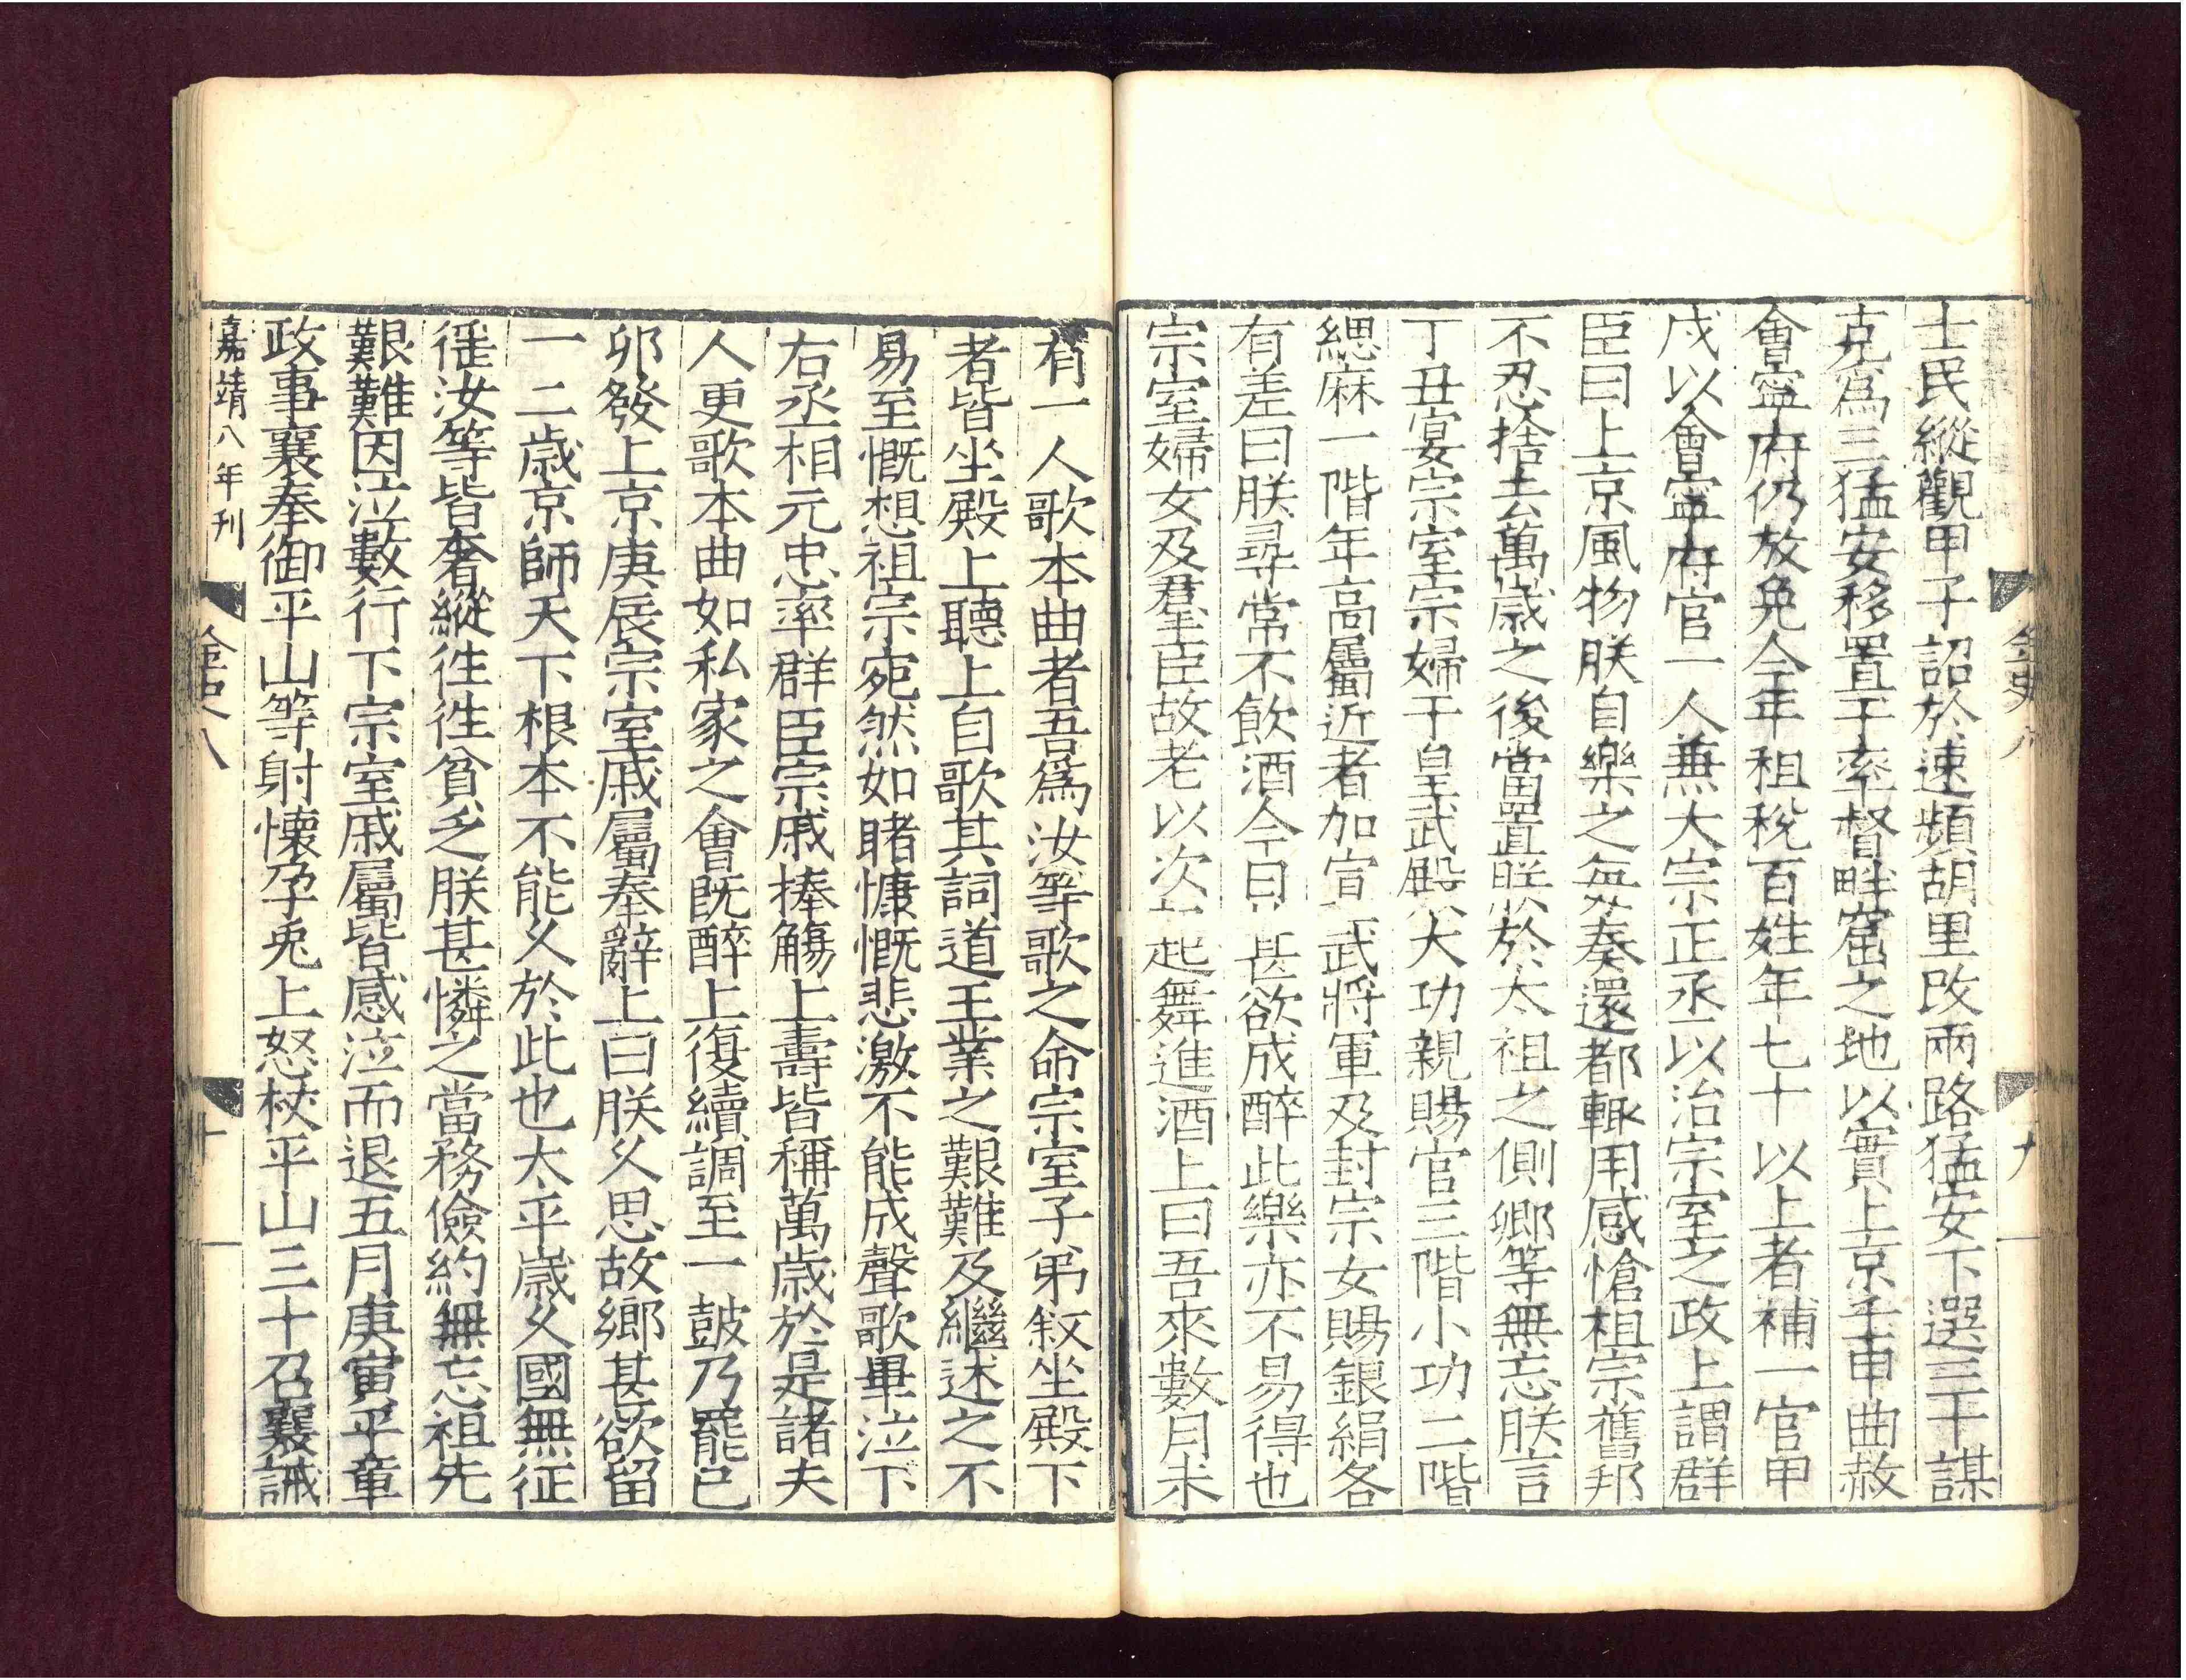 金史八
九
士民縱觀甲子詔於速頻胡里改兩路猛安下選三十謀
克爲三猛安移置于率督畔窟之地以實上京壬申曲赦
會寧府仍放免今年租稅百姓年七十以上者補一官甲
戌以會寧府官一人兼大宗正丞以治宗室之政上謂群
臣曰上京風物朕自樂之每奏還都輒用感愴祖宗舊邦
不忍捨去萬歲之後當置朕於太祖之側卿等無忘朕言
丁丑宴宗室宗婦于皇武殿大功親賜官三階小功二階
緦麻一階年高屬近者加宣武將軍及封宗女賜銀絹各
有差曰朕尋常不飲酒今日甚欲成醉此樂亦不易得也
宗室婦女及羣臣故老以次起舞進酒上曰吾來數月未
有一人歌本曲者吾爲汝等歌之命宗室子弟叙坐殿下
者皆坐殿上聽上自歌其詞道王業之艱難及繼述之不
易至慨想祖宗宛然如睹慷慨悲激不能成聲歌畢泣下
右丞相元忠率群臣宗戚捧觴上壽皆稱萬歲於是諸夫
人更歌本曲如私家之會既醉上復續調至一鼓乃罷己
卯發上京庚辰宗室戚屬奉辭上曰朕乆思故鄉甚欲留
一二歲京師天下根本不能乆於此也太平歲乆國無征
徭汝等皆奢縱徃徃貧乏朕甚憐之當務儉約無忘祖先
艱難因泣數行下宗室戚屬皆感泣而退五月庚寅平章
政事襄奉御平山等射懷孕兎上怒杖平山三十召襄誡
嘉靖八年刊
金史八
十